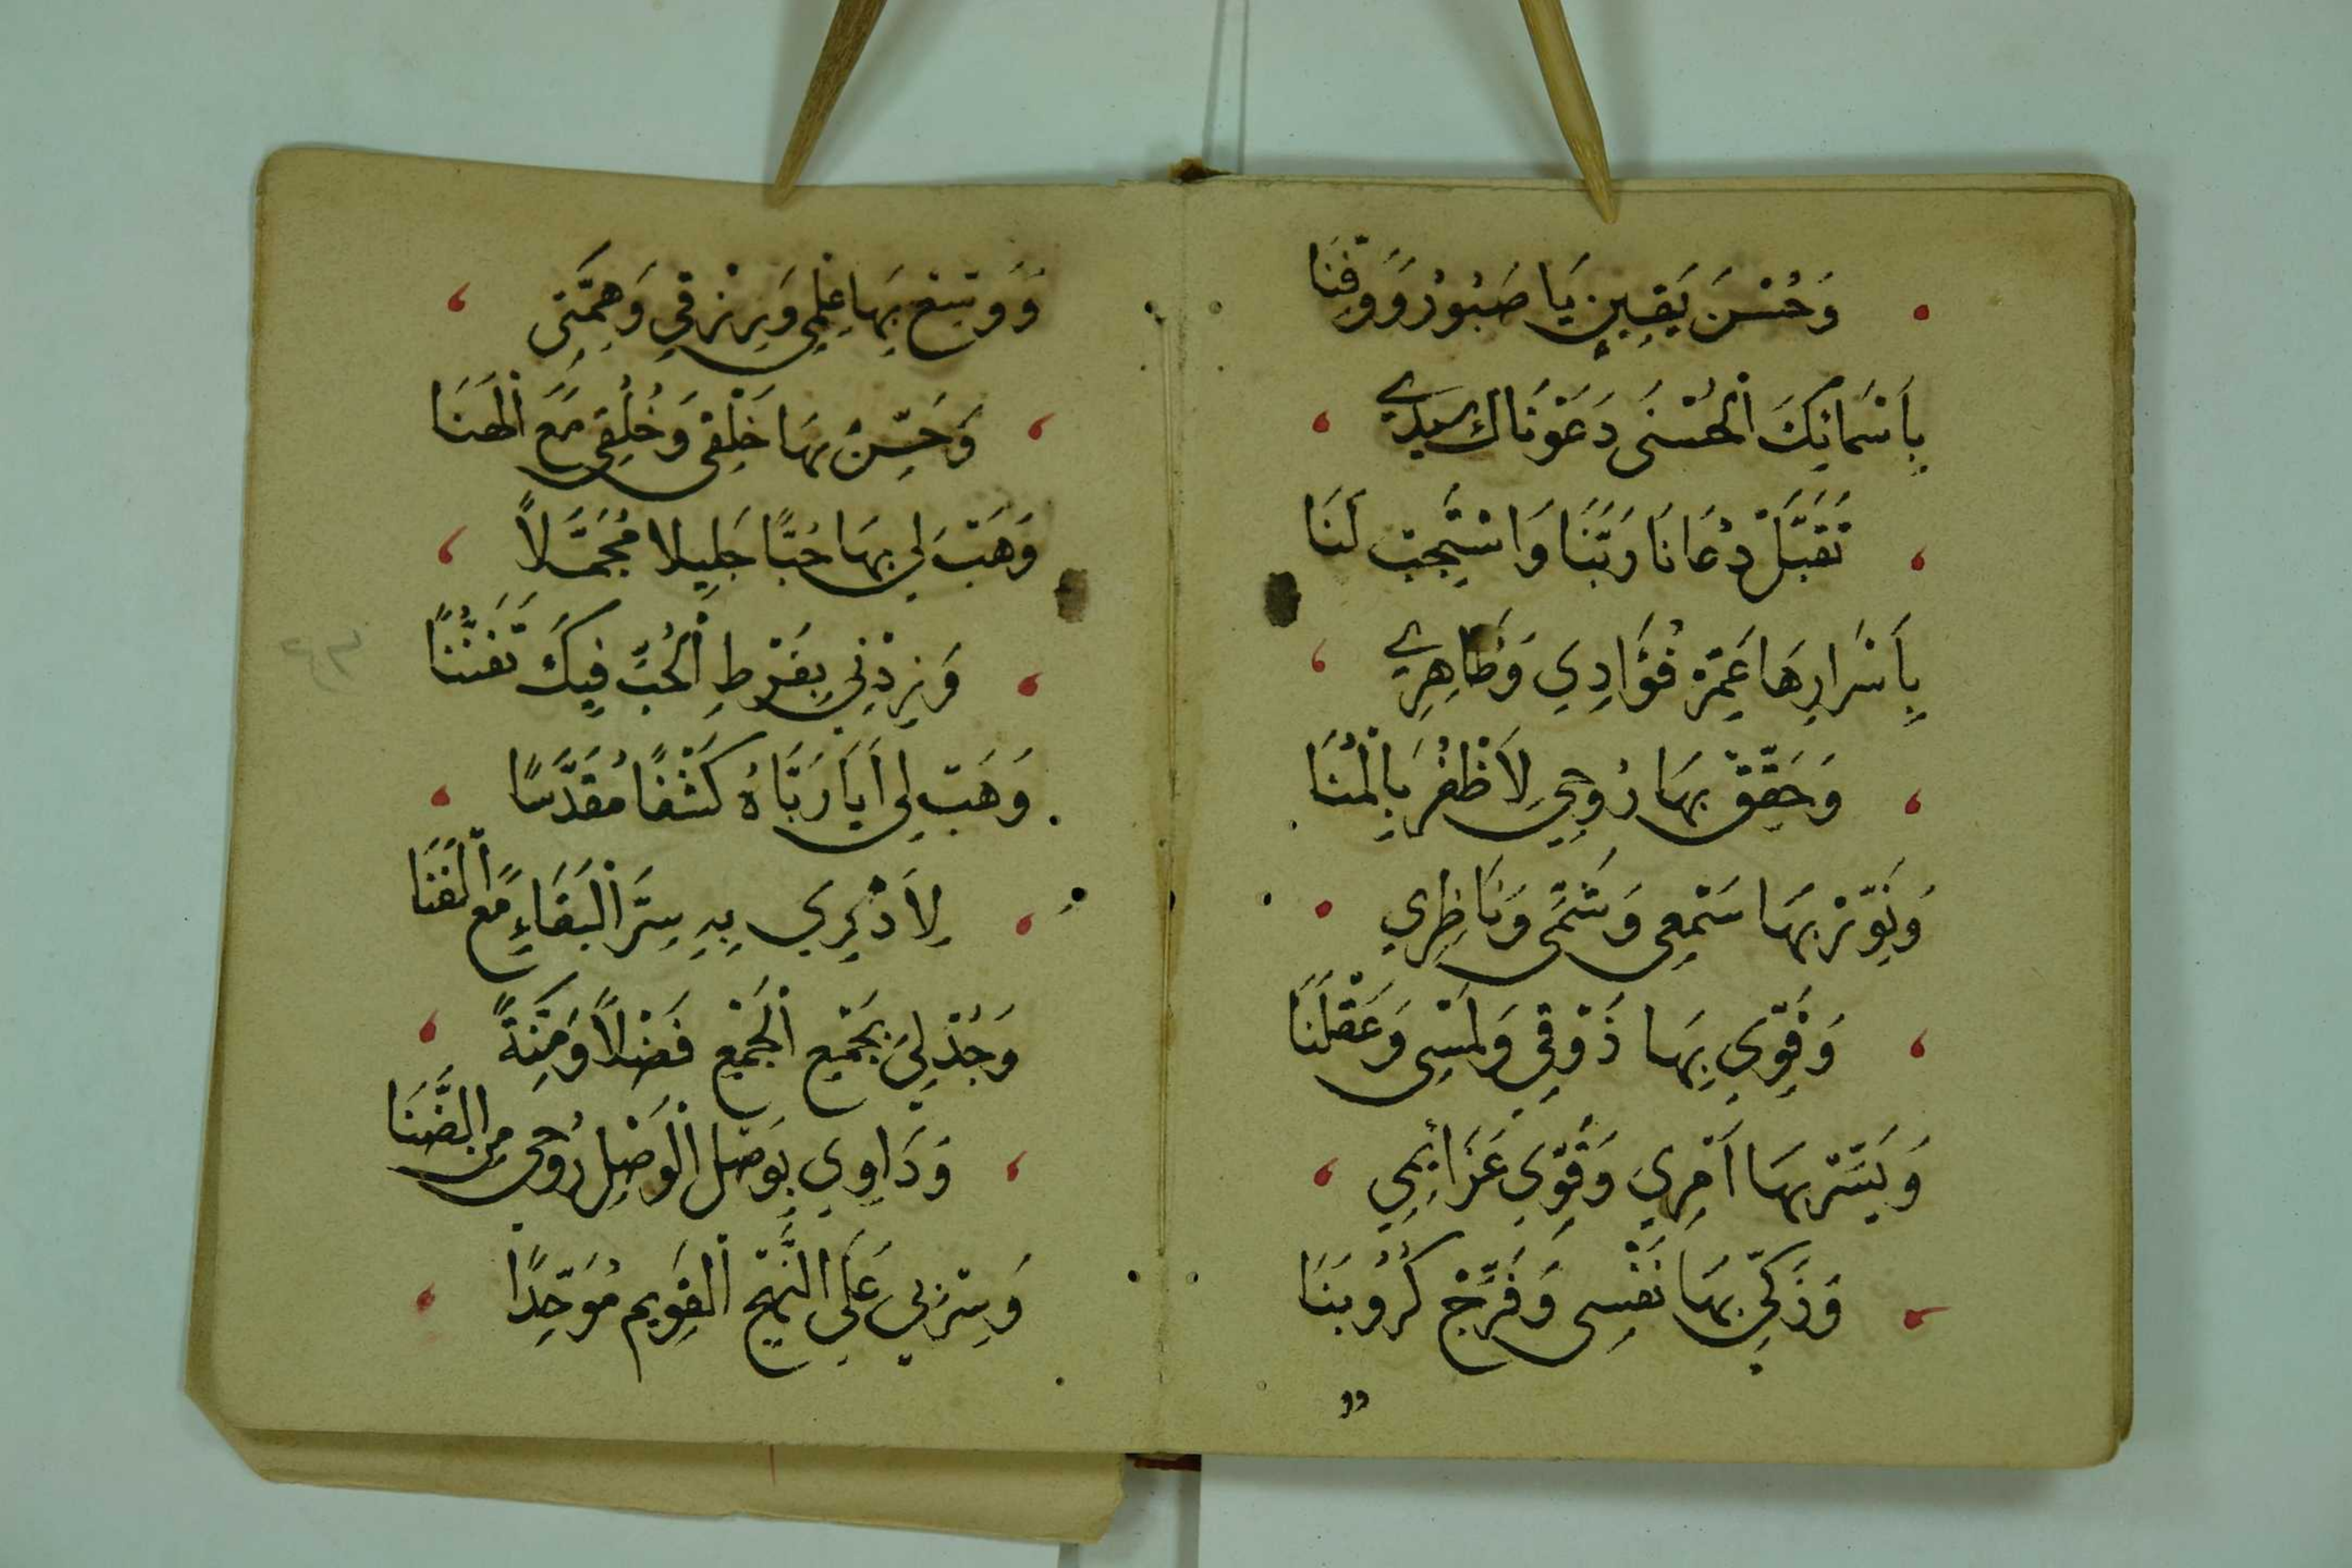 وَحُسْنَ يَقِينٍ يَا صَبُورُ وَوَفِّنَا
بِأَسْمَائِكَ الْحُسْنَى دَعَوْنَاكَ سَيِّدِي
تَقَبَّلْ دُعَانَا رَبَّنَا وَاسْتَجِبْ لَنَا
بِأَسْرَارِهَا عَمِّرْ فُؤَادِي وَظَاهِرِي
وَحَقِّقْ بِهَا رُوحِي لِأَظْفُرَ بِالْمُنَا
وَنَوِّرْ بِهَا سَمْعِي وَشَمِّي وَنَاظِرِي
وَقَوِّي بِهَا ذَوْقِي وَلَمْسِي وَعَقْلَنَا
وَيَسِّرْ بِهَا أَمْرِي وَقَوِّي عَزَائِمِي
وَزَكِّي بِهَا نَفْسِي وَفَرِّجْ كُرُوبَنَا
وو
وَوَسِّعْ بِهَا عِلْمِي وَرِزْقِي وَهِمَّتِي
وَحَسِّنْ بِهَا خَلْقِي وَخُلْقِي مَعَ الْهَنَا
وَهَبْ لِي بِهَا حُبًّا جَلِيلًا مُجَمَّلًا
وَزِدْنِي بِفَرْطِ الْحُبِّ فِيكَ تَفَنُّنًا
وَهَبْ لِي أَيَا رَبَّاهُ كَشْفًا مُقَدَّسًا
لِأَدْرِي بِهِ سِرَّ الْبَقَاءِ مَعَ الْفَنَا
وَجُدْ لِي بِجَمْعِ الْجَمْعِ فَضْلًا وَمِنَّةً
وَدَاوِي بِوَصْلِ الْوَصْلِ رُوحِي مِنَ الضَّنَا
وَسِرْ بِي عَلَى النَّهْجِ الْقَوِيمِ مُوَحِّدًا